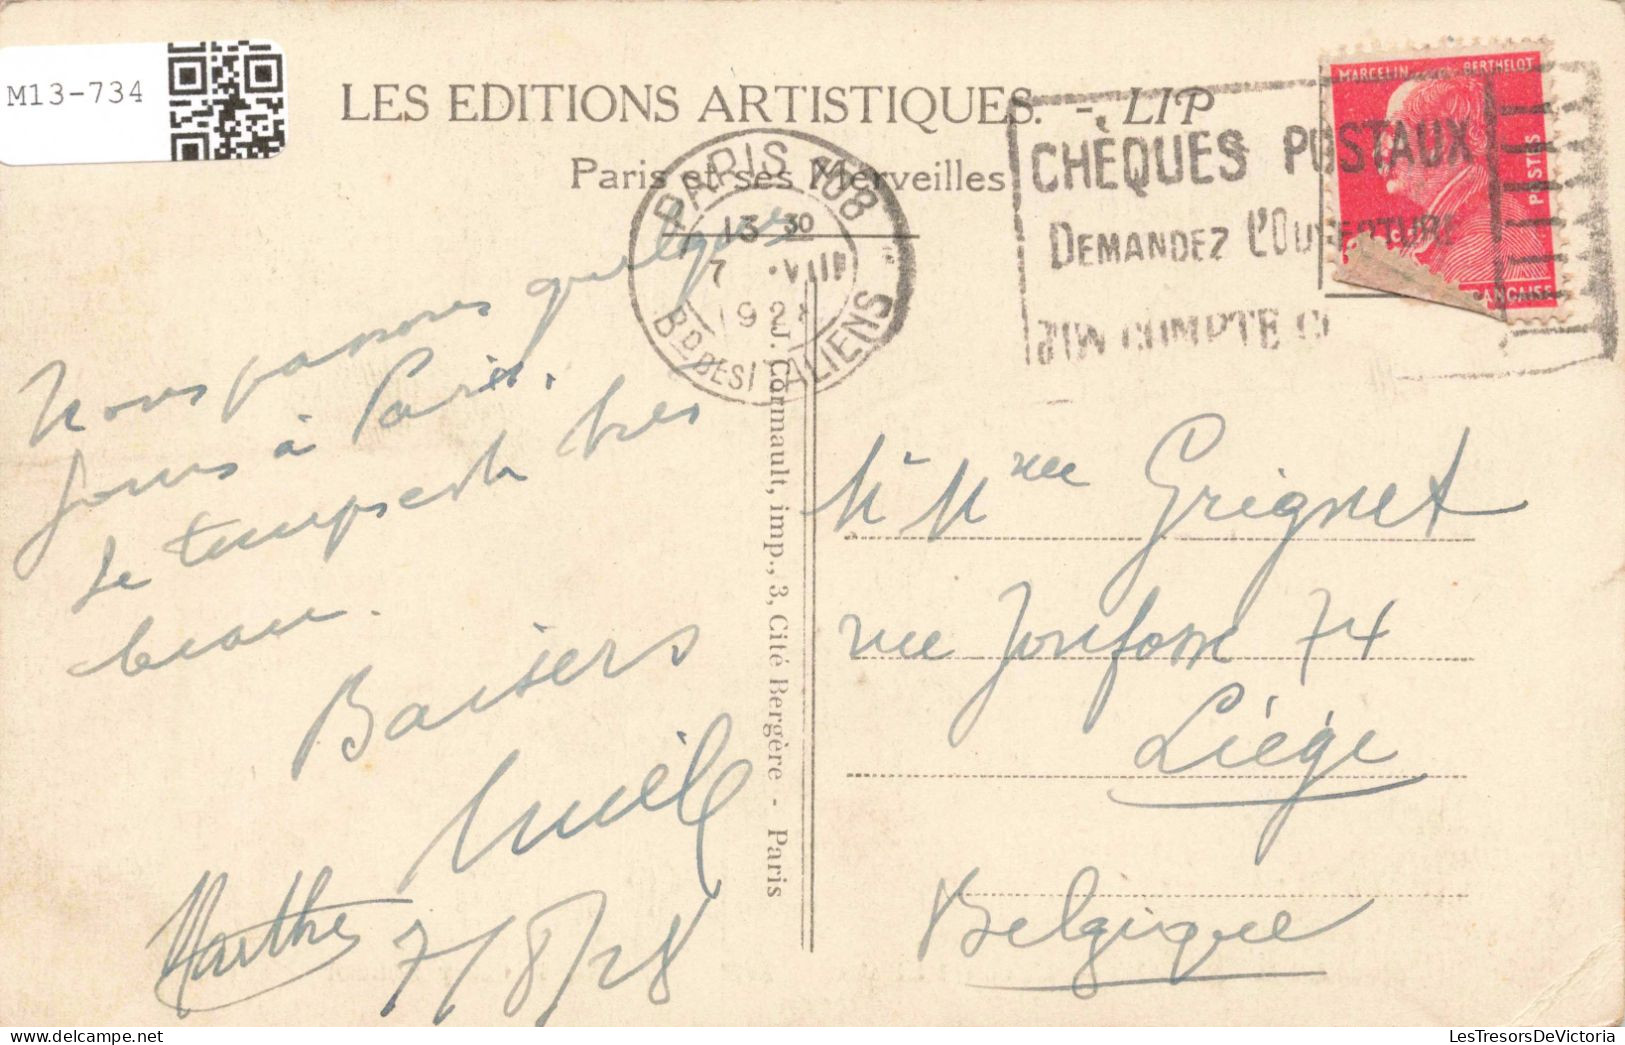 M13-734
LES EDITIONS ARTISTIQUES. - LIP
Paris et ses Merveilles
PARIS 108
13 30
7 VIII
192
Bd DES ITALIENS
CHÈQUES POSTAUX
DEMANDEZ L'OUVERTURE
D'UN COMPTE C
MARCELIN BERTHELOT
POSTES
ANÇAISE
Nous passons quelques
jours à Paris.
Le temps est très
beau.
Baisers
Marthe
7/8/28
J. Cormault, imp., 3, Cité Bergère - Paris
M Mme Grignet
rue Jonfosse 74
Liége
Belgique
LesTresorsDeVictoria.com